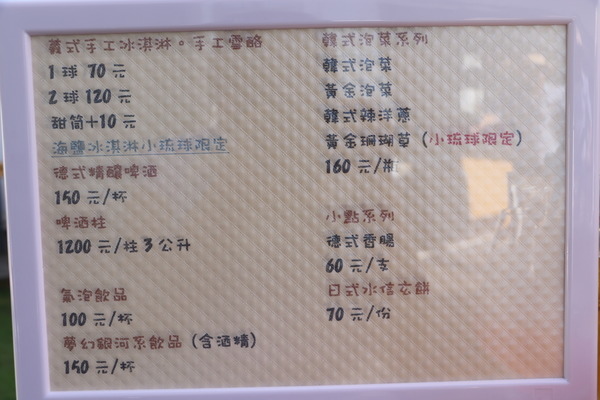 義式手工冰淇淋。手工雪酪
1球 70 元
2球 120 元
甜筒+10 元
海鹽冰淇淋小琉球限定
德式精釀啤酒
150 元/杯
啤酒柱
1200 元/柱 3 公升
氣泡飲品
100 元/杯
夢幻銀河系飲品（含酒精）
150 元/杯
韓式泡菜系列
韓式泡菜
黃金泡菜
韓式辣洋蔥
黃金珊瑚草（小琉球限定）
160 元/瓶
小點系列
德式香腸
60 元/支
日式水信玄餅
70 元/份